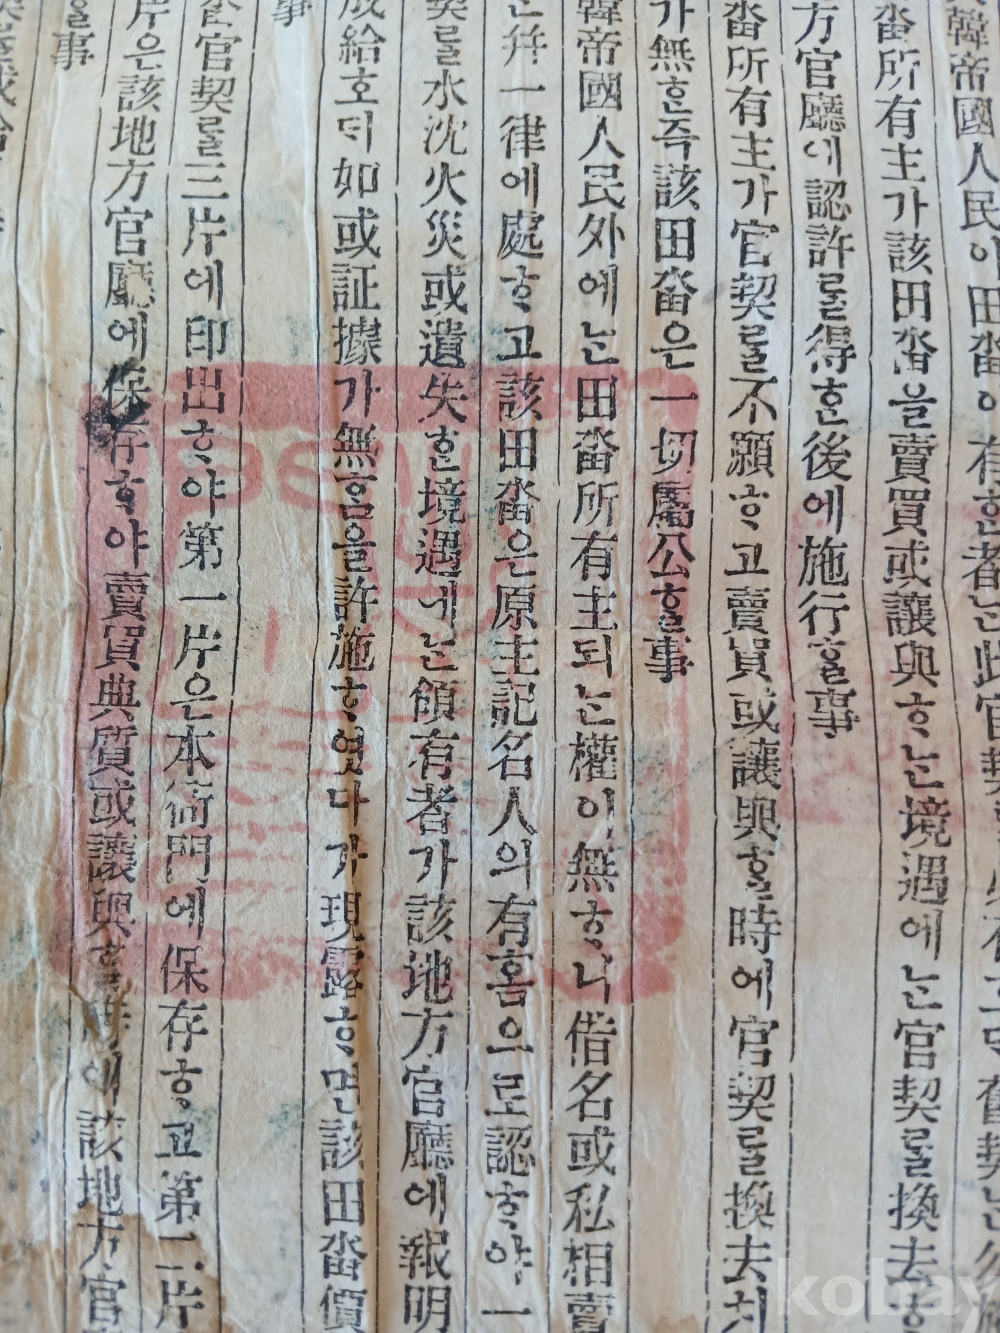 韓帝國人民이田畓이有한者는此官契
畓所有主가該田畓을賣買或讓與ᄒᆞ는境遇에는官契를換去ᄒᆞ
方官廳에認許를得ᄒᆞᆫ後에施行ᄒᆞᆯ事
畓所有主가官契를不願ᄒᆞ고賣買或讓與ᄒᆞᆯ時에官契를換去치
가無ᄒᆞᆫ즉該田畓은一切屬公ᄒᆞᆯ事
韓帝國人民外에는田畓所有主되는權이無ᄒᆞ니借名或私相賣
는幷一律에處ᄒᆞ고該田畓은原主記名人의有홈으로認ᄒᆞ야一
契를水沈火災或遺失ᄒᆞᆫ境遇에는領有者가該地方官廳에報明
成給호ᄃᆡ如或証據가無홈을許施ᄒᆞ엿다가現露ᄒᆞ면該田畓價
事
官契를三片에印出ᄒᆞ야第一片은本衙門에保存ᄒᆞ고第二片
片은該地方官廳에保存ᄒᆞ야賣買典質或讓與ᄒᆞᆯ時에該地方官
ᄒᆞᆯ事
kobay